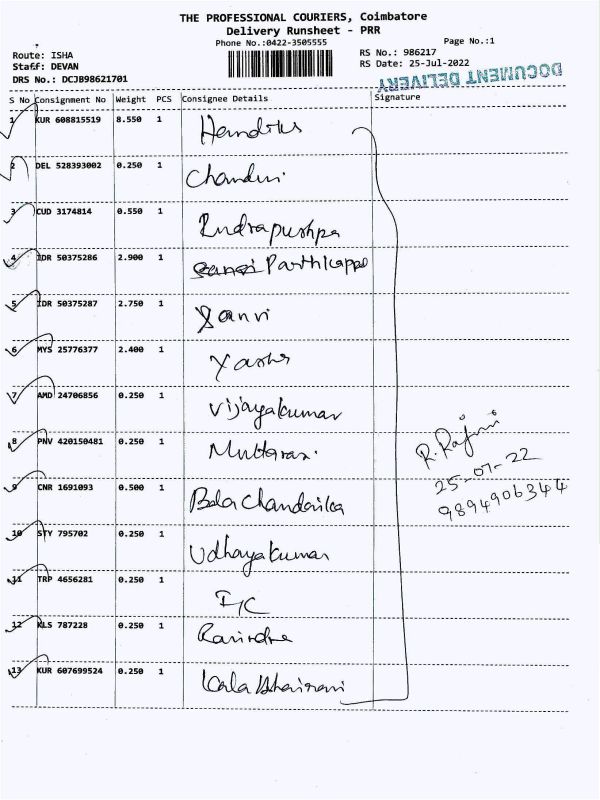 THE PROFESSIONAL COURIERS, Coimbatore
Delivery Runsheet - PRR
Phone No.:0422-3505555
Page No.:1
Route: ISHA
RS No.: 986217
Staff: DEVAN
RS Date: 25-Jul-2022
DRS No.: DCJB98621701
DOCUMENT DELIVERY
S No Consignment No Weight PCS Consignee Details Signature
1 KUR 608815519 8.550 1
2 DEL 528393002 0.250 1 Chandni
3 CUD 3174814 0.550 1 Rudrapushpa
4 IDR 50375286 2.900 1
5 IDR 50375287 2.750 1 Sanvi
6 MYS 25776377 2.400 1
7 AMD 24706856 0.250 1 Vijayakumar
8 PNV 420150481 0.250 1
R. Rajini
25-07-22
9894906344
9 CNR 1691093 0.500 1 Bala Chandrika
10 STY 795702 0.250 1 Udhayakumar
11 TRP 4656281 0.250 1 I/C
12 KLS 787228 0.250 1
13 KUR 607699524 0.250 1 Kala Bhairavi